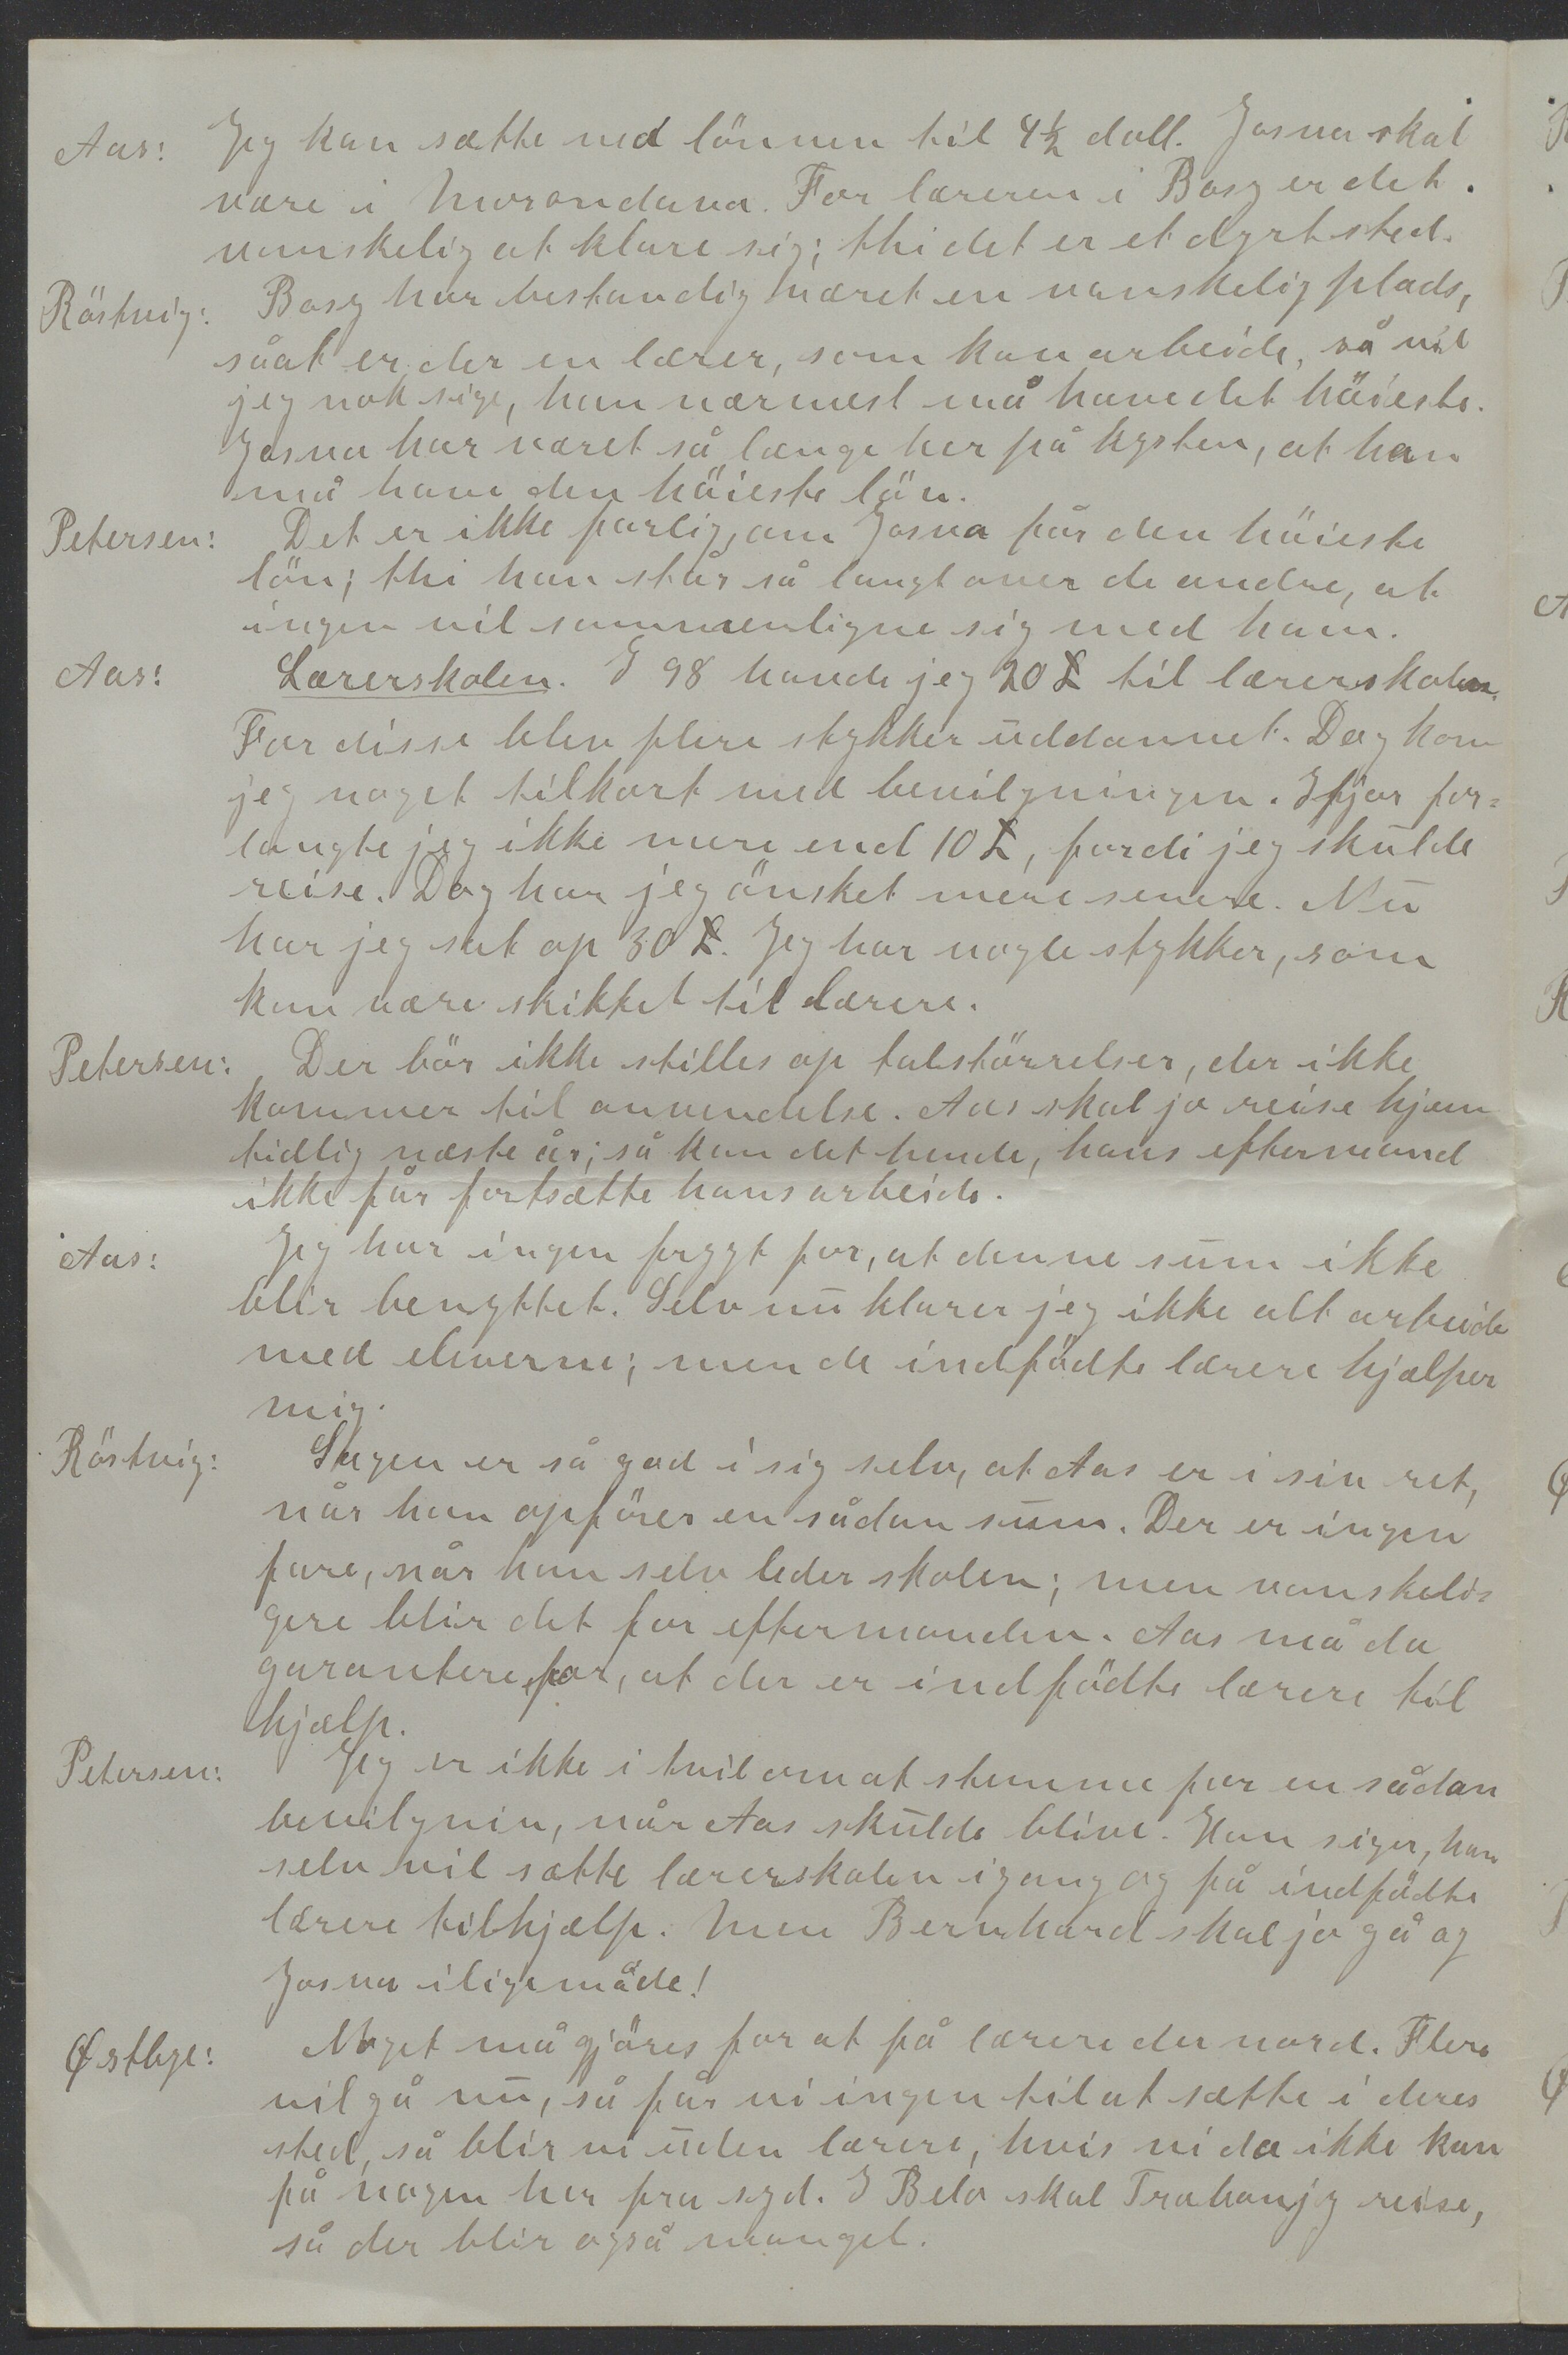 Aas: Jeg kan sætte ned lönnen til 4½ doll. Josva skal
være i Morondava. For læreren i Bosy er det
vanskelig at klare sig; thi det er et dyrt sted.
Röstvig: Bosy har bestandig været en vanskelig plads,
såat er der en lærer, som kan arbeide, så vil
jeg nok sige, han nærmest må have det höieste.
Josva har været så længe her på kysten, at han
må have den höieste lön.
Petersen: Det er ikke farlig, om Josva får den höieste
lön; thi han står så langt over de andre, at
ingen vil sammenligne sig med ham.
Aas: Lærerskolen. I 98 havde jeg 20 £ til lærerskolen.
For disse blev flere stykker uddannet. Dog kom
jeg noget tilkort med bevilgningen. Ifjor for=
langte jeg ikke mere end 10 £, fordi jeg skulde
reise. Dog har jeg önsket mere senere. Nu
har jeg sat op 30 £. Jeg har nogle stykker, som
kan være skikket til lærere.
Petersen: Der bör ikke stilles op talstörrelser, der ikke
kommer til anvendelse. Aas skal jo reise hjem
tidlig næste år; så kan det hende, hans eftermand
ikke får fortsætte hans arbeide.
Aas: Jeg har ingen frygt for, at denne sum ikke
blir benyttet. Selv nu klarer jeg ikke alt arbeide
med eleverne; men de indfödte lærere hjælper
mig.
Röstvig: Sagen er så god i sig selv, at Aas er i sin ret,
når han opförer en sådan sum. Der er ingen
fare, når han selv leder skolen; men vanskeli=
gere blir det for eftermanden. Aas må da
garantere for, at der er indfödte lærere til
hjælp.
Petersen: Jeg er ikke i tvil om at stemme for en sådan
bevilgnin, når Aas skulde blive. Han siger, han
selv vil sætte lærerskolen igang og få indfödte
lærere tilhjælp. Men Bernhard skal jo gå og
Josva iligemåde!
Østbye: Noget må gjöres for at få lærere der nord. Flere
vil gå nu, så får vi ingen til at sætte i deres
sted, så blir vi uden lærere, hvis vi da ikke kan
få nogen her fra syd. I Belo skal Trahanjy reise,
så der blir også mangel.